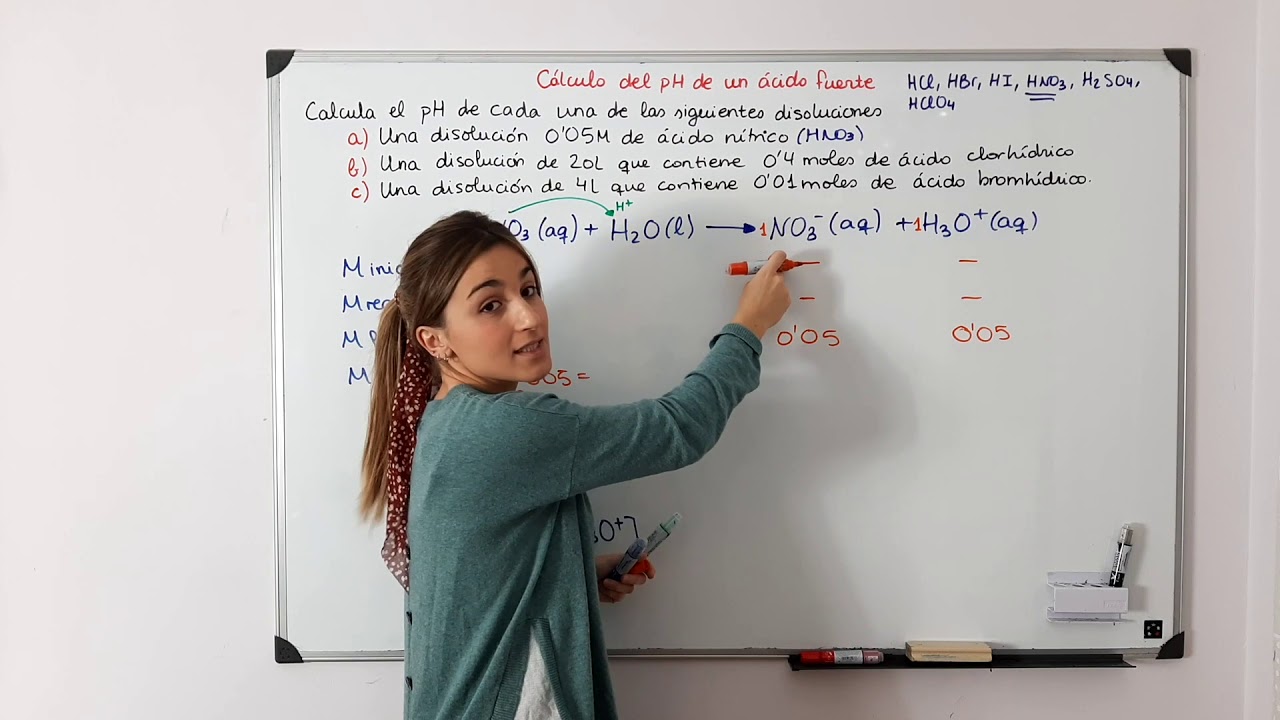 Cálculo del pH de un ácido fuerte
HCl, HBr, HI, HNO3, H2SO4,
HClO4
Calcula el pH de cada una de las siguientes disoluciones
a) Una disolución 0'05M de ácido nítrico (HNO3)
b) Una disolución de 20L que contiene 0'4 moles de ácido clorhídrico
c) Una disolución de 4L que contiene 0'01 moles de ácido bromhídrico.
H+
O3 (aq) + H2O(l) → 1NO3-(aq) + 1H3O+(aq)
M inic
— —
M rec
— —
M
0'05 0'05
M
05 =
O+]